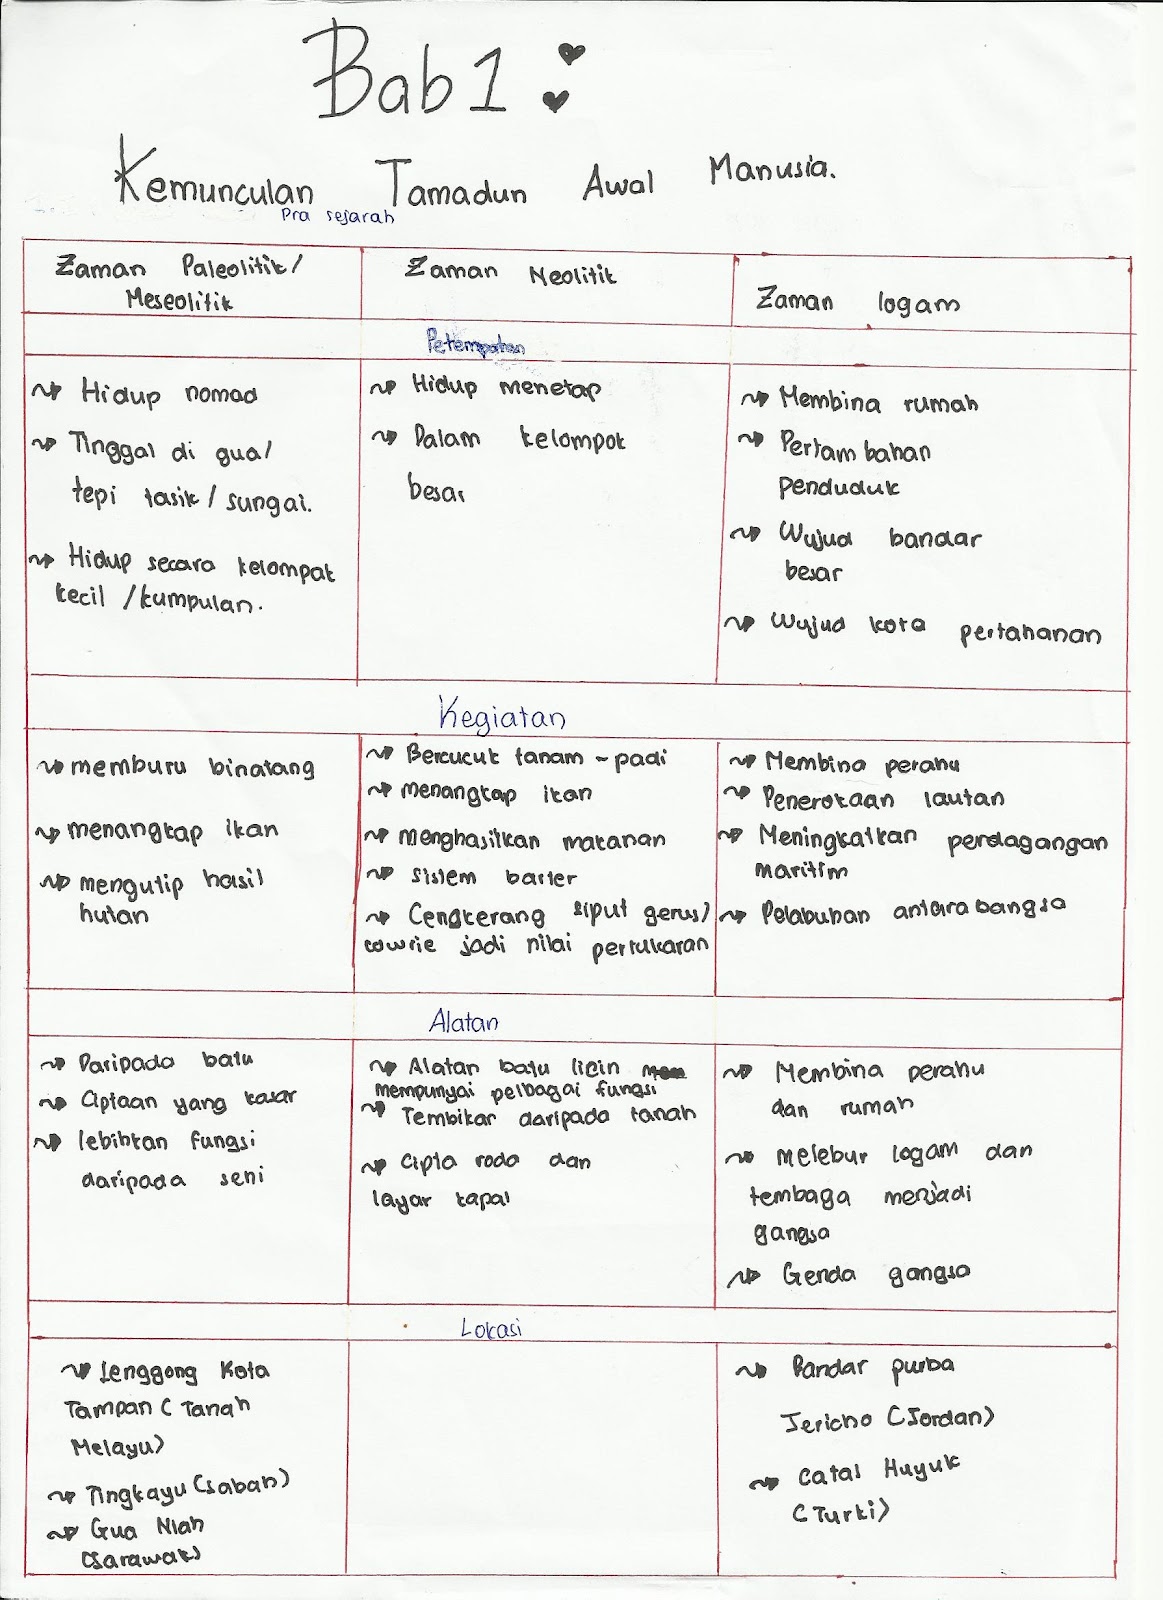 Bab 1
Kemunculan Tamadun Awal Manusia.
Pra sejarah
Zaman Paleolitik/
Meseolitik
Zaman Neolitik
Zaman logam
Petempatan
Hidup nomad
Tinggal di gua/
tepi tasik / sungai.
Hidup secara kelompak
kecil /kumpulan.
Hidup menetap
Dalam kelompok
besar
Membina rumah
Pertambahan
penduduk
Wujud bandar
besar
Wujud kota pertahanan
Kegiatan
memburu binatang
menangkap ikan
mengutip hasil
hutan
Bercucuk tanam - padi
menangkap ikan
menghasilkan makanan
sistem barter
Cengkerang siput gerus/
cowrie jadi nilai pertukaran
Membina perahu
Penerokaan lautan
Meningkatkan perdagangan
maritim
Pelabuhan antarabangsa
Alatan
Daripada batu
Ciptaan yang kasar
lebihkan fungsi
daripada seni
Alatan batu licin
mempunyai pelbagai fungsi
Tembikar daripada tanah
cipta roda dan
layar kapal
Membina perahu
dan rumah
melebur logam dan
tembaga menjadi
gangsa
Genda gangsa
Lokasi
Lenggong Kota
Tampan ( Tanah
Melayu)
Tingkayu (Sabah)
Gua Niah
(Sarawak)
Bandar purba
Jericho (Jordan)
Catal Huyuk
(Turki)